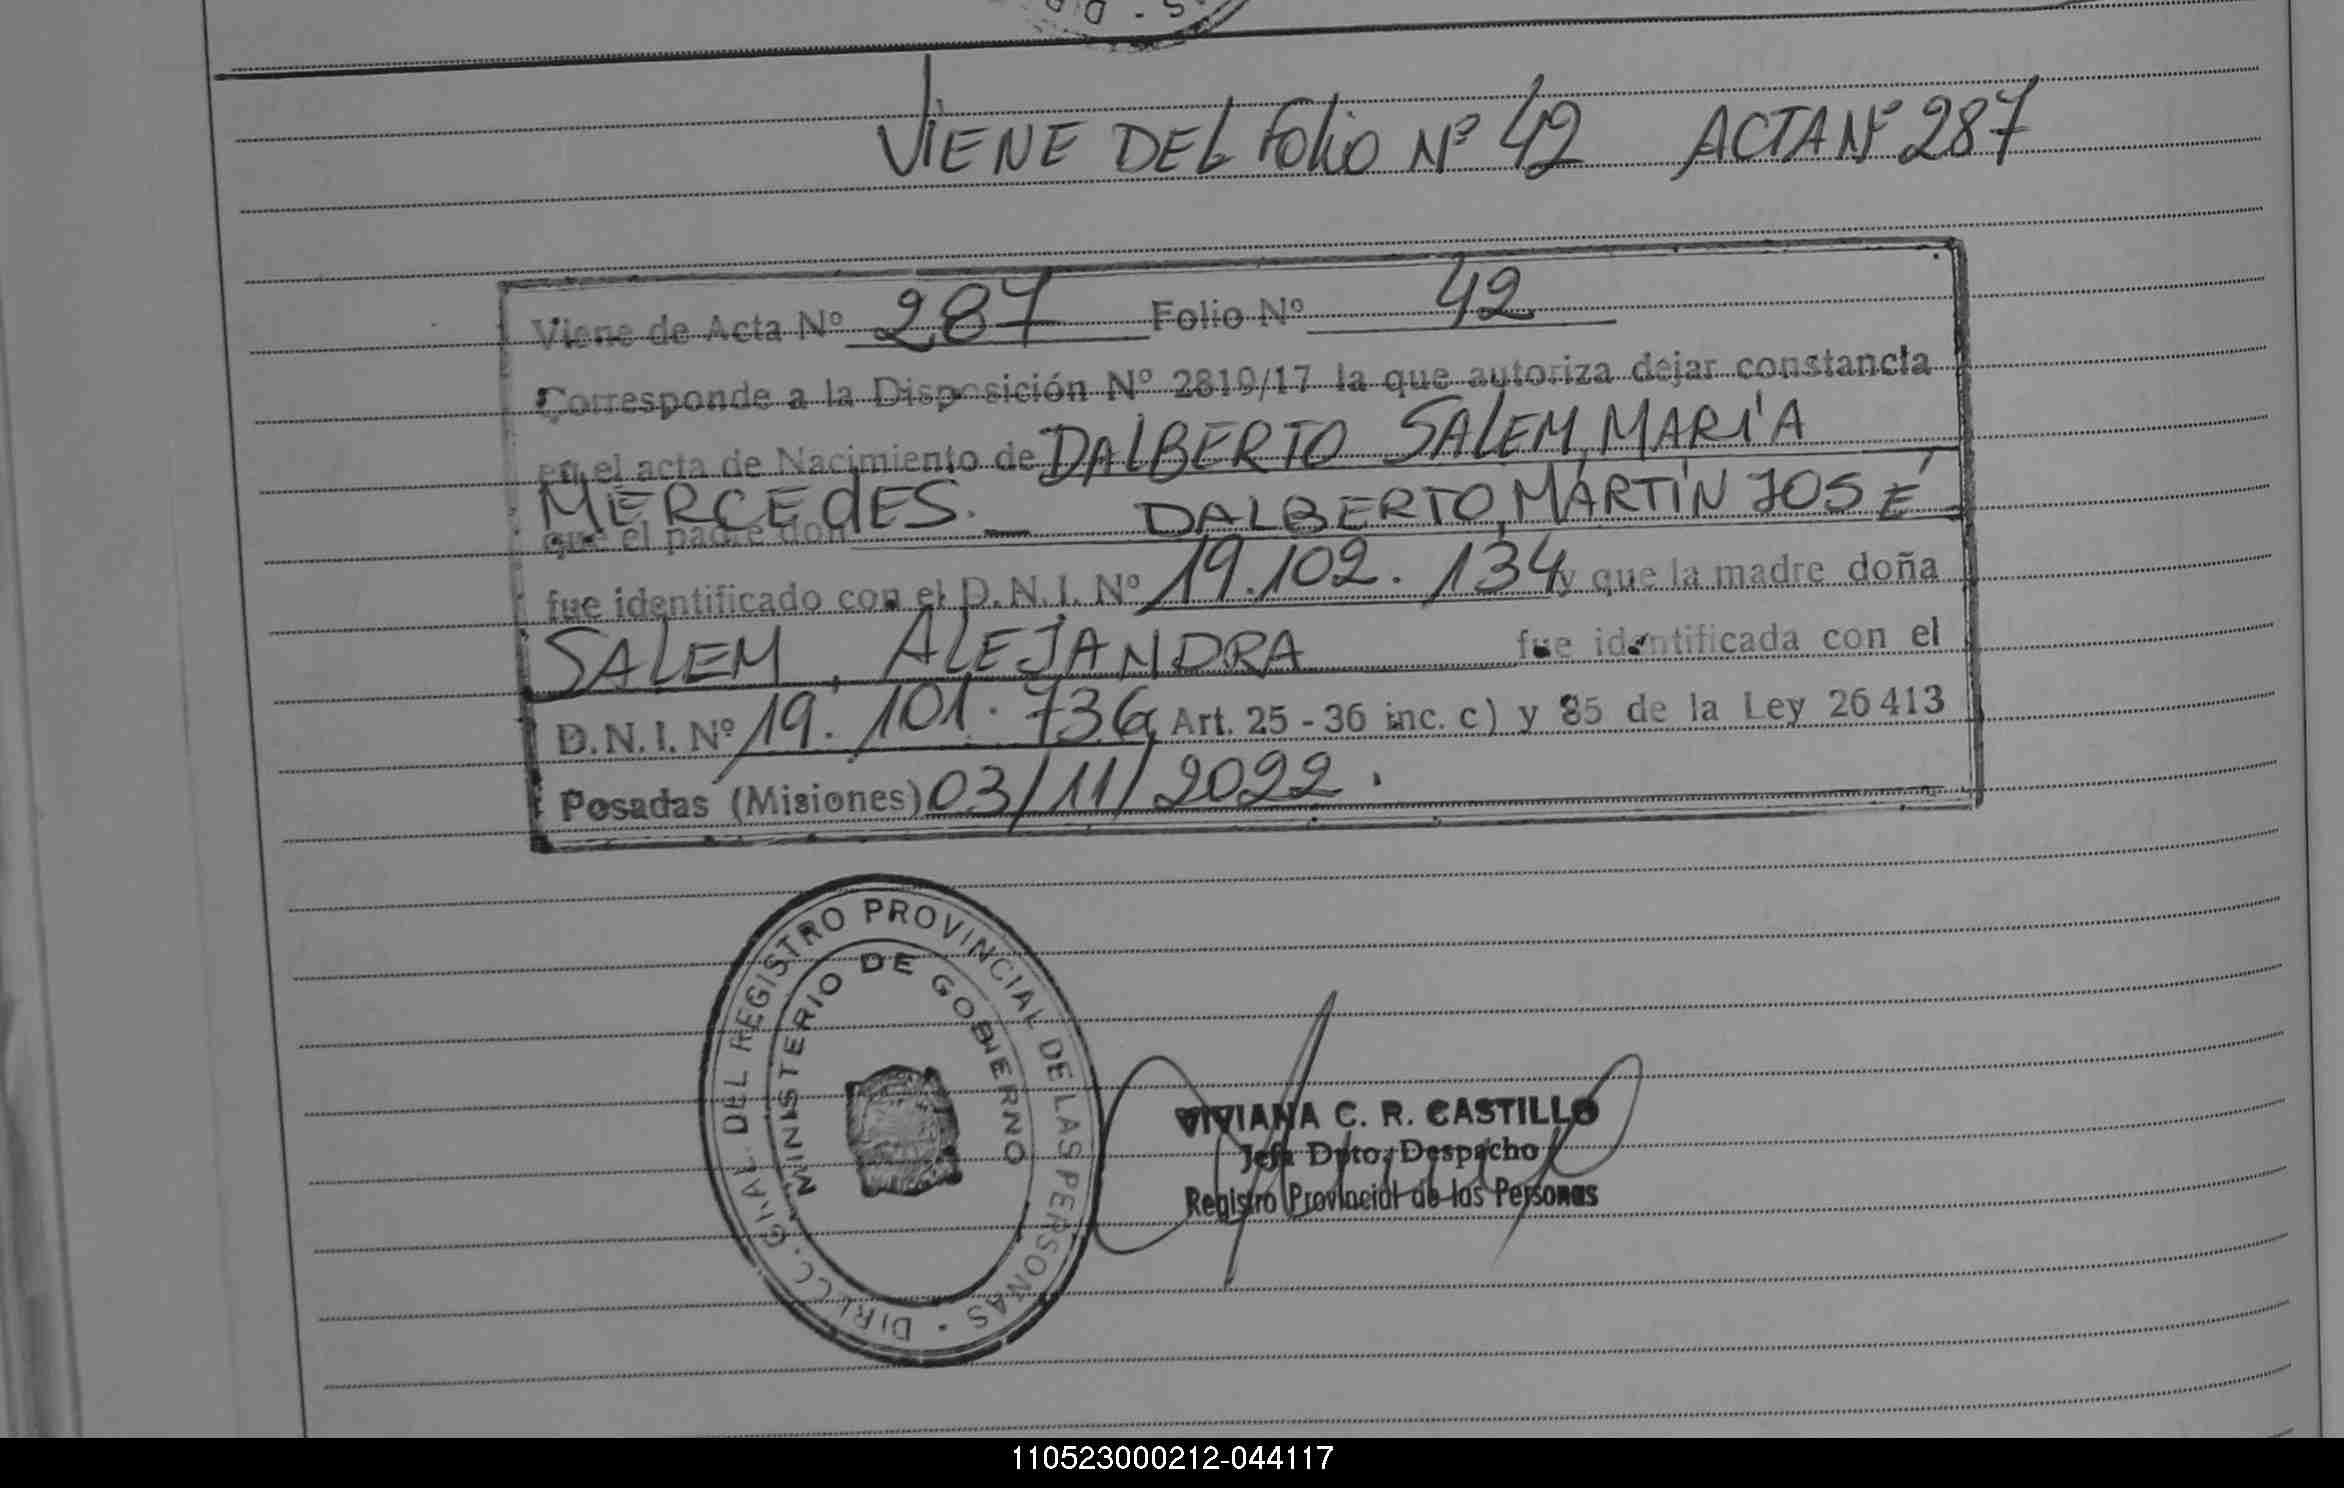 VIENE DEL Folio Nº 42 ACTA Nº 287
Viene de Acta Nº 287 Folio Nº 42
Corresponde a la Disposición Nº 2819/17 la que autoriza dejar constancia
en el acta de Nacimiento de DALBERTO SALEM, MARÍA
MERCEdES. _ DALBERTO, MARTÍN JOSÉ
que el padre don
fue identificado con el D.N.I. Nº 19.102.134 y que la madre doña
SALEM, ALEJANDRA fue identificada con el
D.N.I. Nº 19.101.736 Art. 25 - 36 inc. c) y 85 de la Ley 26413
Posadas (Misiones) 03/11/2022.
DIRECC. GRAL. DEL REGISTRO PROVINCIAL DE LAS PERSONAS
MINISTERIO DE GOBIERNO
VIVIANA C. R. CASTILLO
Jefa Dpto. Despacho
Registro Provincial de las Personas
110523000212-044117